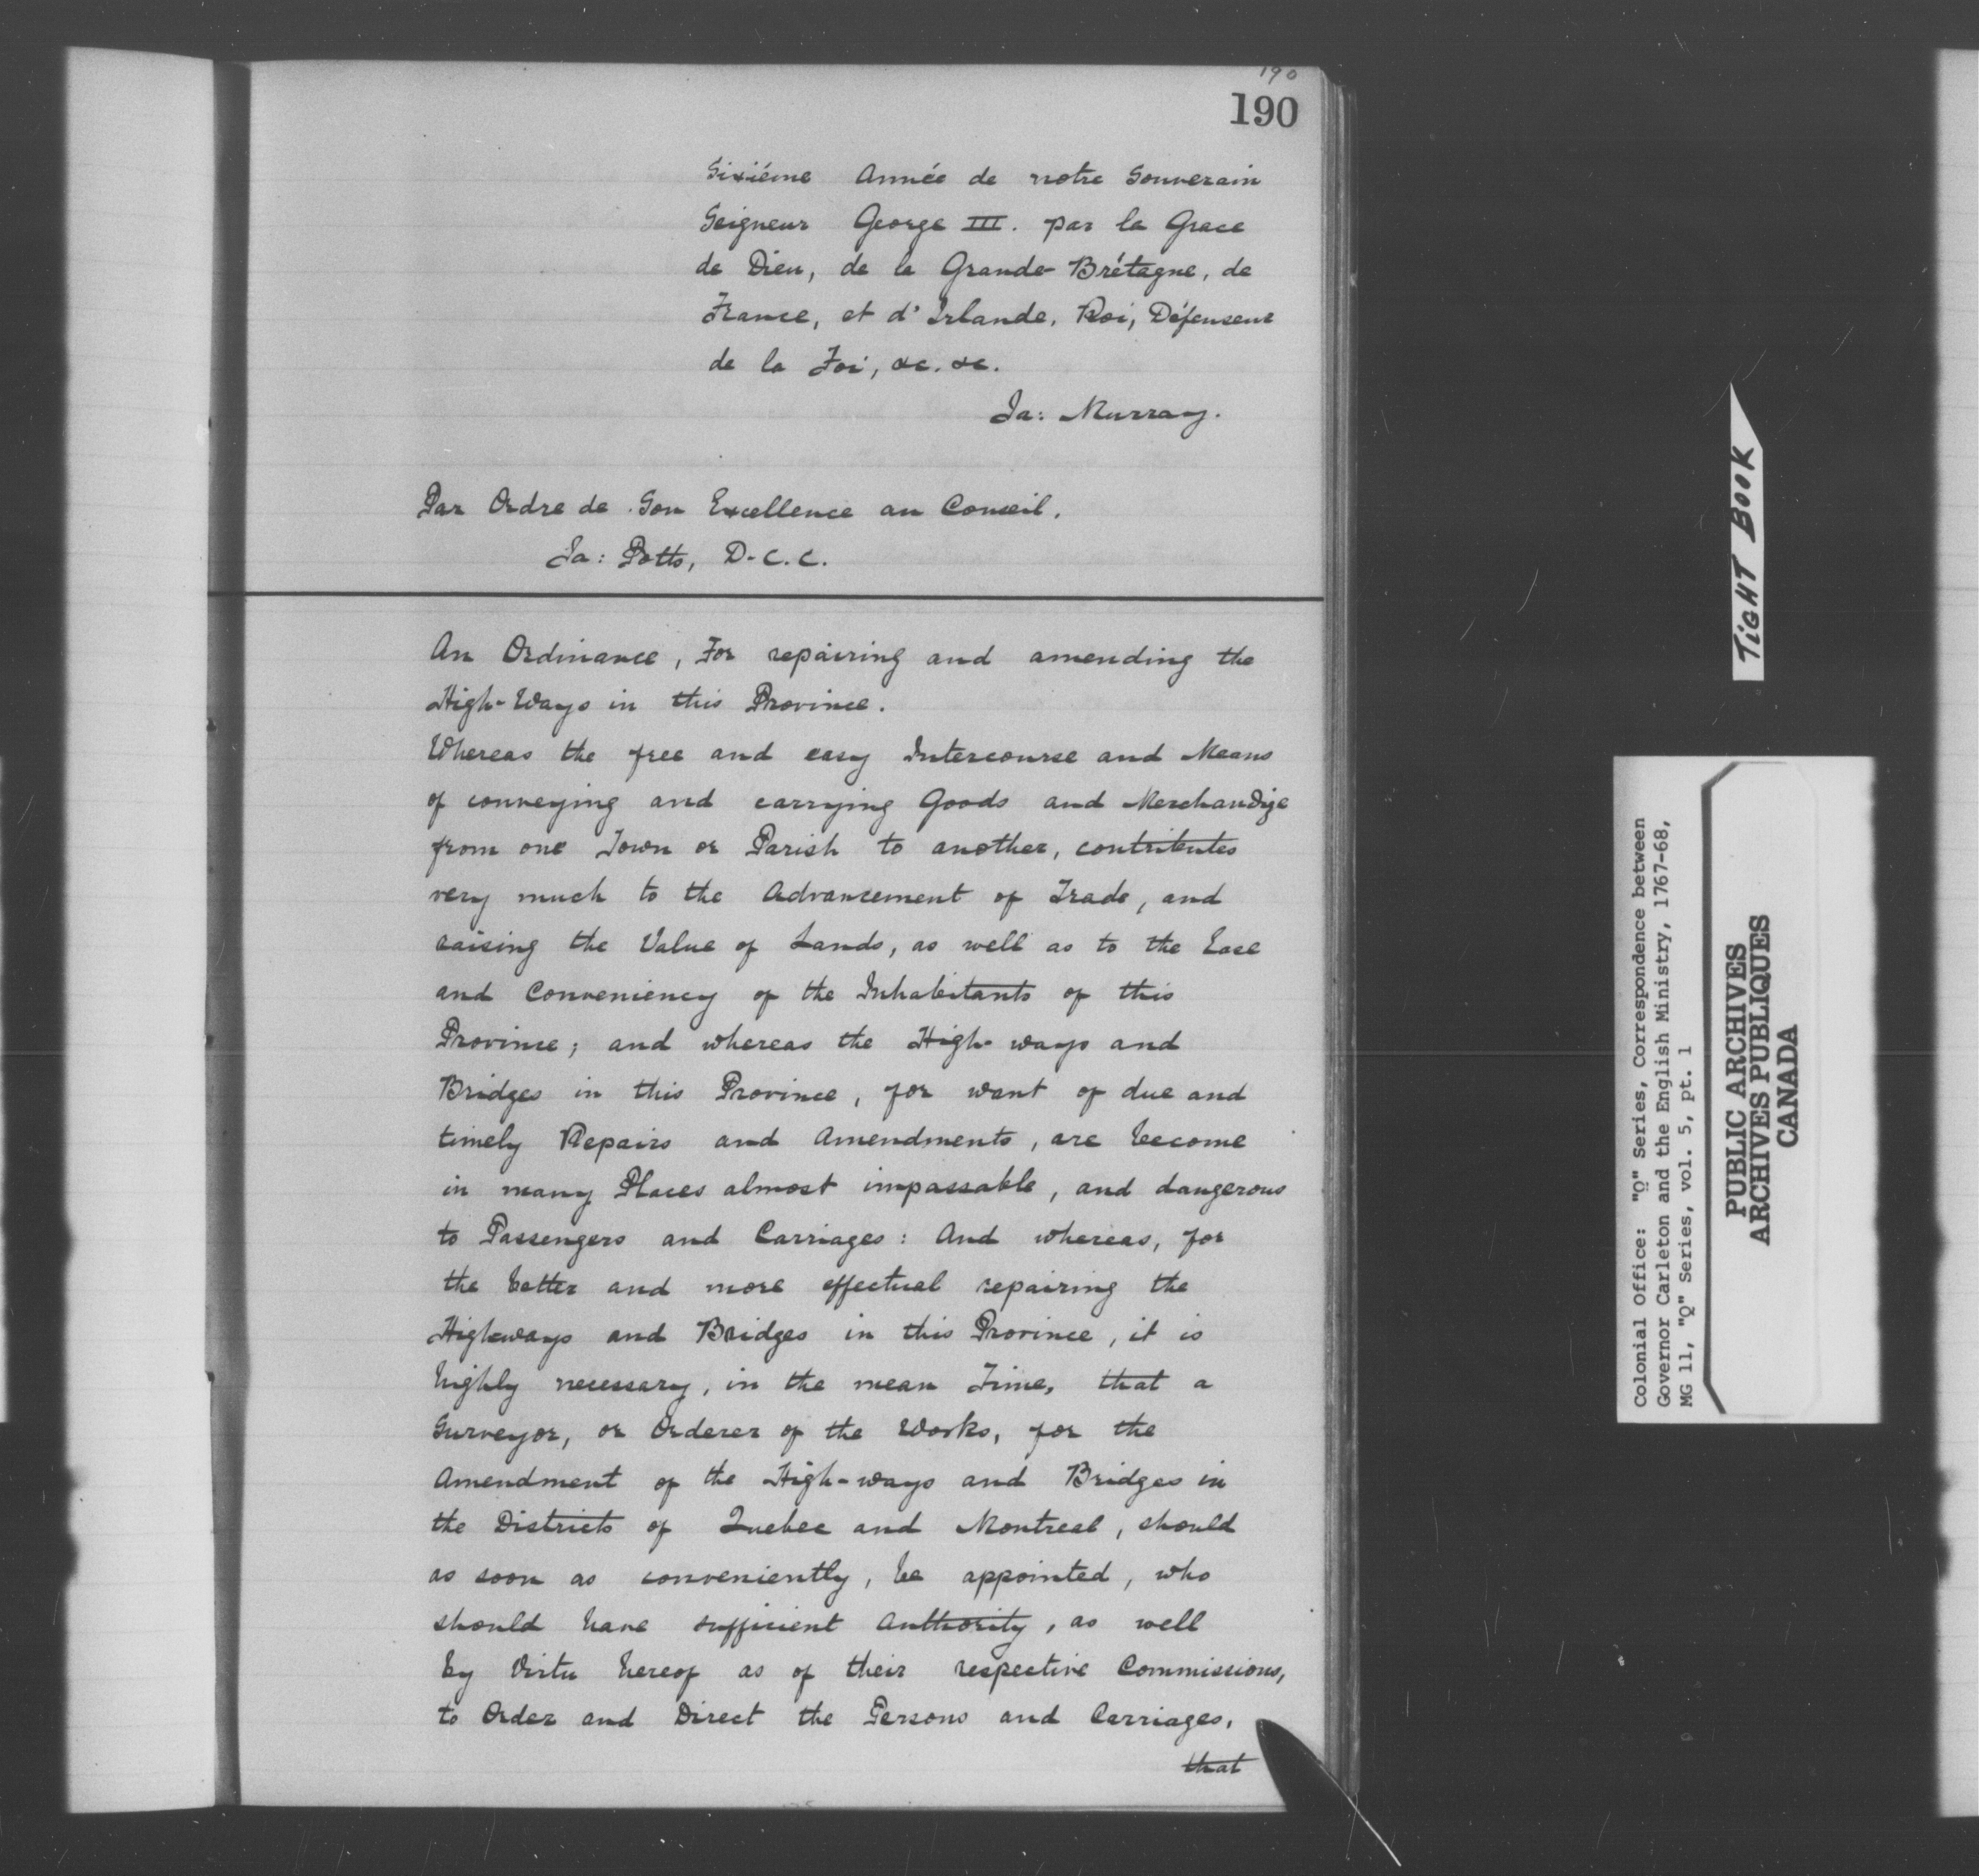 190
190
Sixiéme Année de notre Souverain
Seigneur George III. par la Grace
de Dieu, de la Grande-Brétagne, de
France, et d'Irlande, Roi, Défenseur
de la Foi, &c. &c.
Ja: Murray.
Par Ordre de Son Excellence au Conseil.
Ja: Potts, D.C.C.
An Ordinance, For repairing and amending the
High-Ways in this Province.
Whereas the free and easy Intercourse and Means
of conveying and carrying Goods and Merchandize
from one Town or Parish to another, contributes
very much to the Advancement of Trade, and
raising the Value of Lands, as well as to the Ease
and Conveniency of the Inhabitants of this
Province; and whereas the High-ways and
Bridges in this Province, for want of due and
timely Repairs and Amendments, are become
in many Places almost impassable, and dangerous
to Passengers and Carriages: And whereas, for
the better and more effectual repairing the
Highways and Bridges in this Province, it is
highly necessary, in the mean Time, that a
Surveyor, or Orderer of the Works, for the
Amendment of the High-ways and Bridges in
the Districts of Quebec and Montreal, should
as soon as conveniently, be appointed, who
should have sufficient Authority, as well
by Virtu hereof as of their respective Commissions,
to Order and Direct the Persons and Carriages,
that
TIGHT BOOK
Colonial Office: "Q" Series, Correspondence between
Governor Carleton and the English Ministry, 1767-68,
MG 11, "Q" Series, vol. 5, pt. 1
PUBLIC ARCHIVES
ARCHIVES PUBLIQUES
CANADA